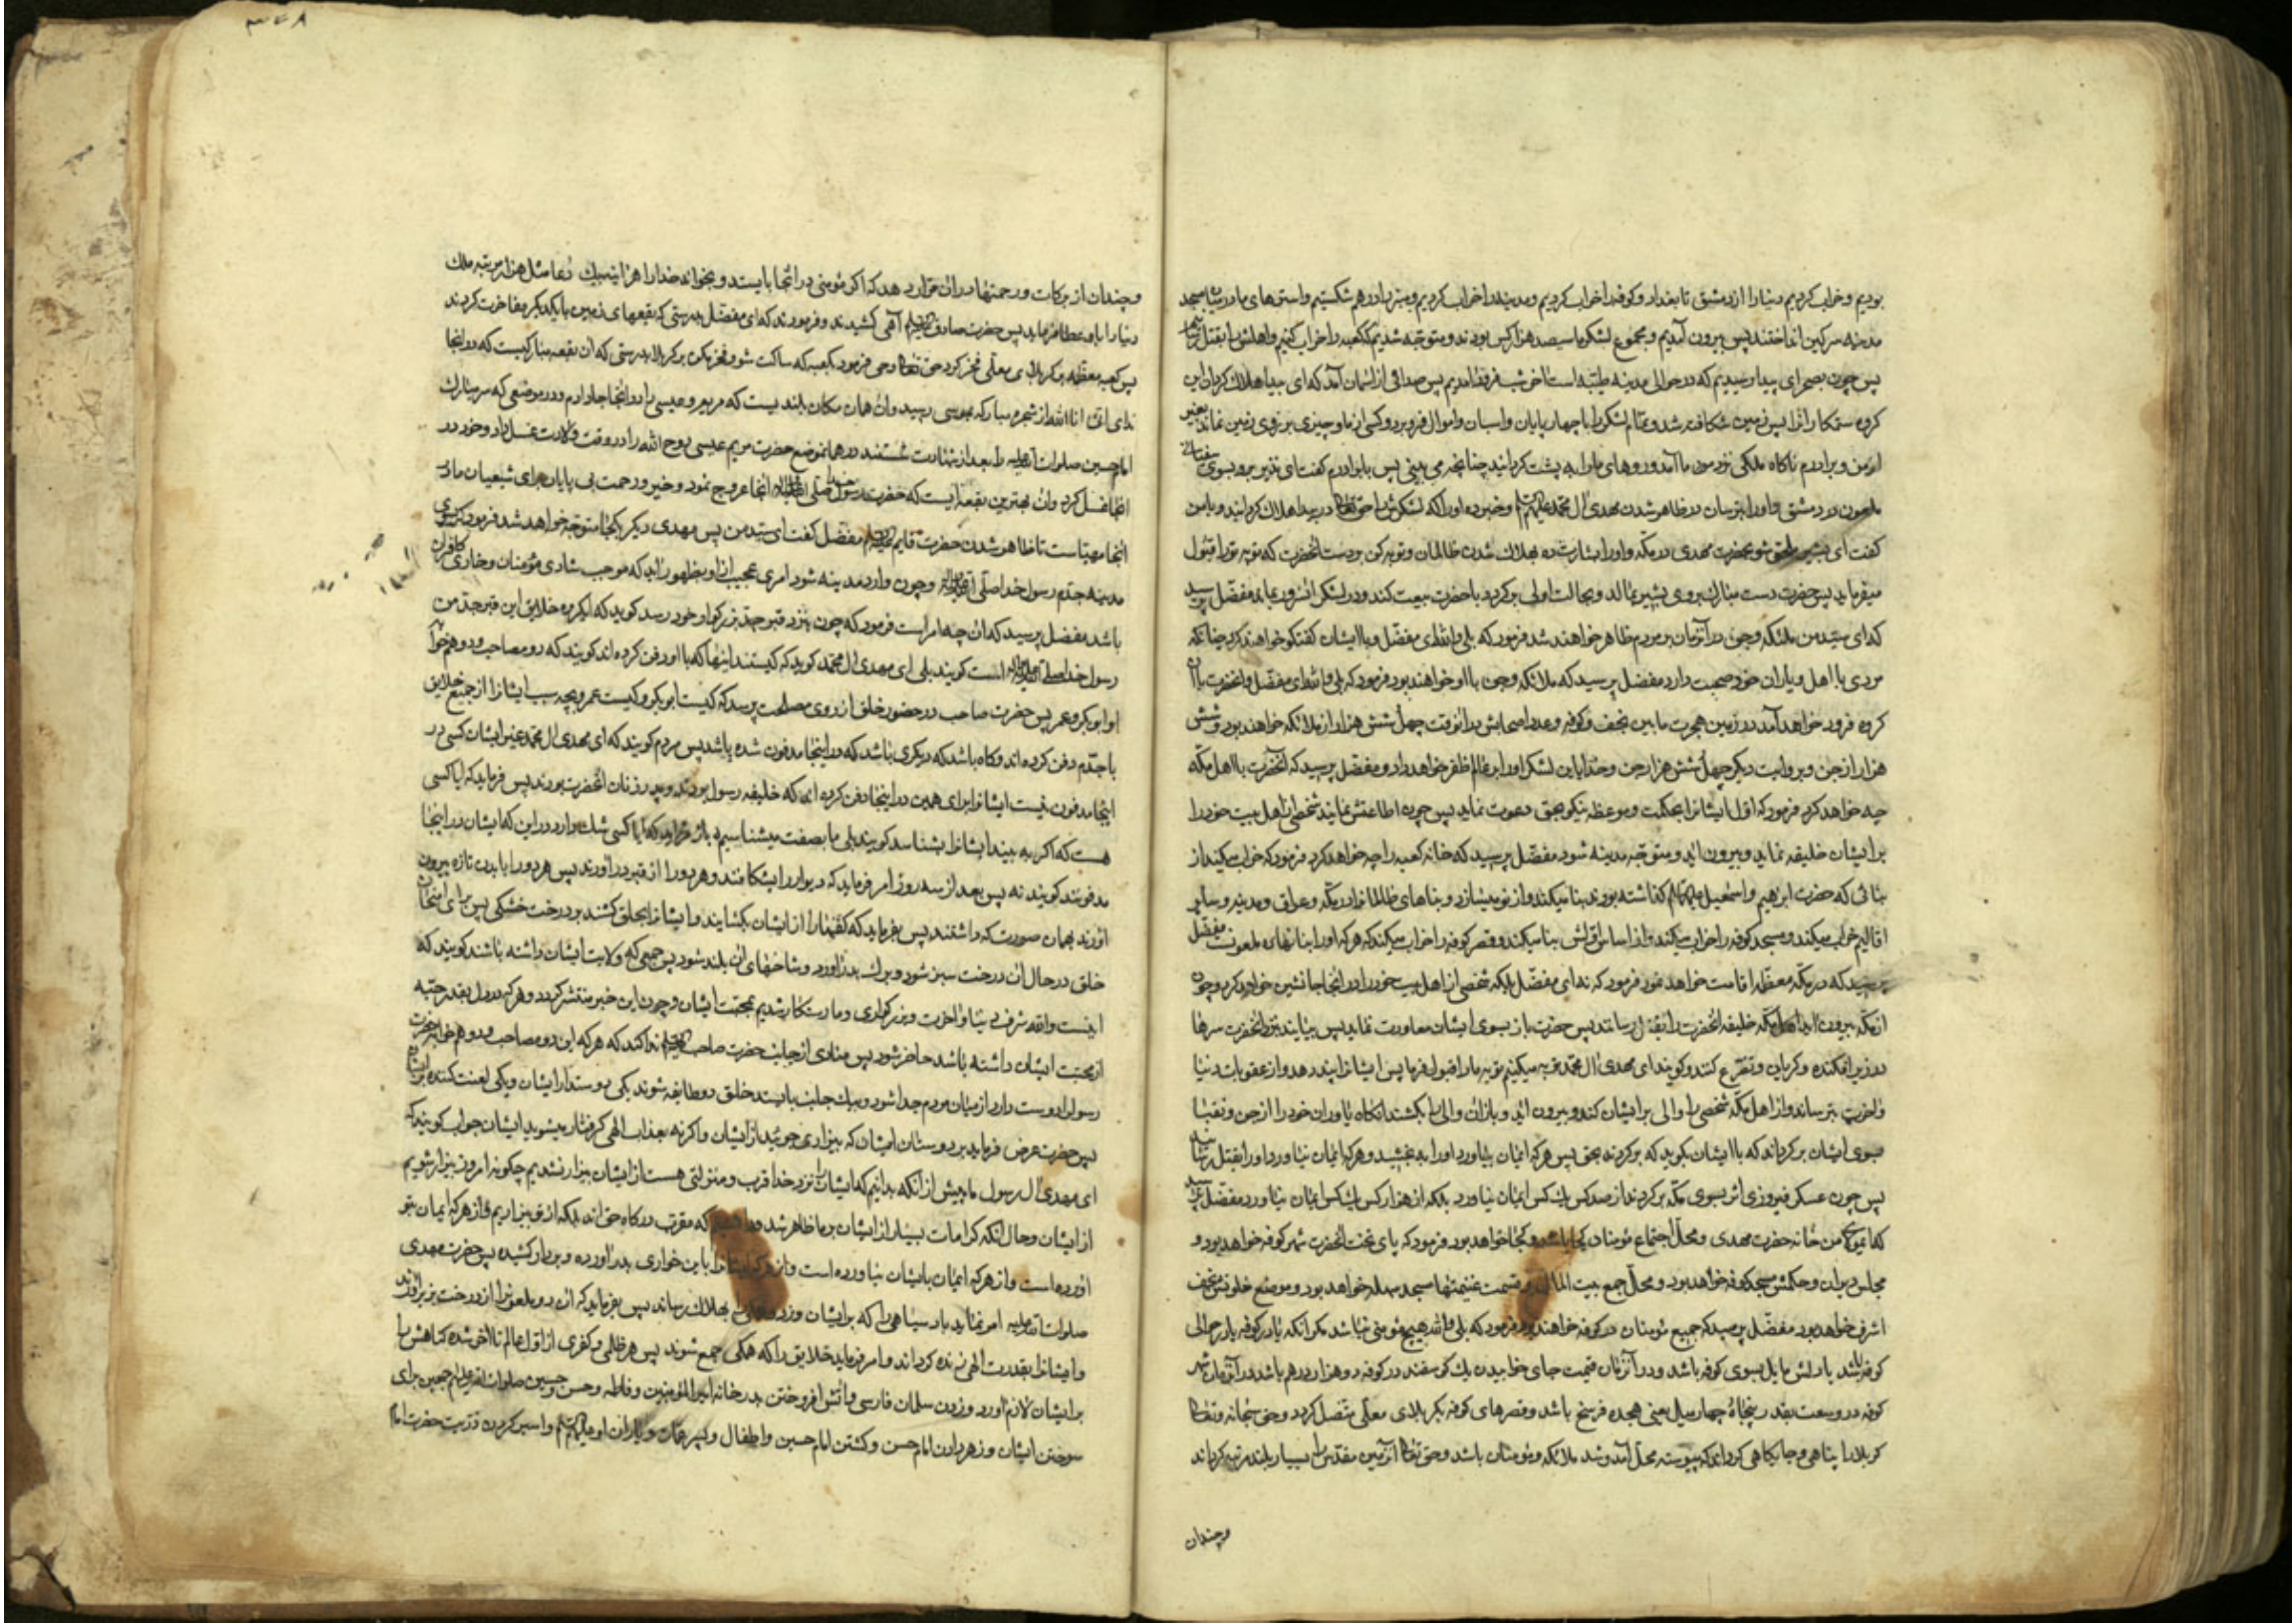 بودیم و خراب کردیم دنیا را از دمشق تا بغداد و کوفه را خراب کردیم و مدینه را خراب کردیم و منبر را درهم شکستیم و استرهای ما در میان مسجد
مدینه سرکین انداختند پس بیرون آمدیم و مجموع لشکر ما سیصد هزار کس بودند و متوجه شدیم که کعبه را خراب کنیم و اهلش را بقتل رسانیم
پس چون بصحرای بیدا رسیدیم که در حوالی مدینه طیبه است آخر شب فرود آمدیم پس صدائی از آسمان آمد که ای بیدا هلاک کردان این
کروه ستمکار را پس زمین شکافته شد و تمام لشکر را با چهارپایان و اسبان و اموال فرو برد و کسی از ما و چیزی بر روی زمین نماند بغیر
از من و برادرم ناکاه ملکی نزد من ما آمد و روهای ما را به پشت کردانید چنانچه می بینی پس با برادرم کفت ای نذیر برو بسوی سفیانی
ملعون در دمشق و او را بترسان در ظاهر شدن مهدی آل محمد علیهم السلام و خبر ده او را که لشکرش را حق تعالی در بیدا هلاک کردانید و با من
کفت ای بشیر ملحق شو بحضرت مهدی در مکه و او را بشارت ده بهلاک شدن ظالمان و توبه کن بر دست آنحضرت که توبه تو را قبول
میفرماید پس حضرت دست مبارک بروی بشیر بمالد و بحالت اولی برکردد با حضرت بیعت کند و در لشکر آنسرور بماند مفضل پرسید
که ای سید من ملائکه و جن در آنزمان بر مردم ظاهر خواهند شد فرمود که بلی والله ای مفضل و با ایشان کفتکو خواهند کرد چنانکه
مردی با اهل و یاران خود صحبت دارد مفضل پرسید که ملائکه و جن با او خواهند بود فرمود که بلی والله ای مفضل و آنحضرت با آن
کروه فرود خواهد آمد در زمین هجرت ما بین نجف و کوفه و عدد اصحابش در آنوقت چهل شش هزار از ملائکه خواهند بود و شش
هزار از جن و بروایت دیکر چهل شش هزار جن و خدا باین لشکر او را بر عالم ظفر خواهد داد و مفضل پرسید که آنحضرت با اهل مکه
چه خواهد کرد فرمود که اول ایشانرا بحکمت و موعظه نیکو بحق دعوت نماید پس چون اطاعتش نمایند شخصی از اهل بیت خود را
بر ایشان خلیفه نماید و بیرون آید و متوجه مدینه شود مفضل پرسید که خانه کعبه را چه خواهد کرد فرمود که خراب میکند از
بنائی که حضرت ابرهیم و اسمعیل علیهما السلام کذاشته بودند بنا میکند و از نو میسازد و بناهای ظالمانرا در مکه و عراق و مدینه و سایر
اقالیم خراب میکند و مسجد کوفه را خراب میکند و از اساس اولش بنا میکند و قصر کوفه را خراب میکند که هر که او را بنا نهاده ملعونست مفضل
پرسید که در مکه معظمه اقامت خواهد نمود فرمود که نه ای مفضل بلکه شخصی از اهل بیت خود را در آنجا جانشین خواهد کرد و چون
از مکه بیرون آید اهل مکه خلیفه آنحضرت را بقتل رسانند پس حضرت باز بسوی ایشان معاودت نماید پس بیایند بنزد آنحضرت سرها
در زیر افکنده و کریان و تضرع کنند و کویند ای مهدی آل محمد توبه میکنیم توبه ما را قبول فرما پس ایشانرا پند دهد و از عقوبات دنیا
و آخرت بترساند و از اهل مکه شخصی را والی بر ایشان کند و بیرون آید و باز آن والی را بکشند آنکاه یاوران خود را از جن و نقبا
بسوی ایشان برکرداند که با ایشان بکوید که برکردند بحق پس هر که ایمان بیاورد او را ببخشید و هر که ایمان نیاورد او را بقتل رسانید
پس چون عسکر فیروزی اثر بسوی مکه برکردند از صد کس یک کس ایمان نیاورد بلکه از هزار کس یک کس ایمان نیاورد مفضل پرسید
که ای مولای من خانه حضرت مهدی و محل اجتماع مؤمنان کجا باشد و کجا خواهد بود فرمود که پای تخت آنحضرت شهر کوفه خواهد بود و
مجلس دیوان و حکمش مسجد کوفه خواهد بود و محل جمع بیت المال و قسمت غنیمتها مسجد سهله خواهد بود و موضع خلوتش نجف
اشرف خواهد بود مفضل پرسید که جمیع مؤمنان در کوفه خواهند بود فرمود که بلی والله هیچ مؤمنی نباشد مکر آنکه یا در کوفه یا در حوالی
کوفه باشد یا دلش مایل بسوی کوفه باشد و در آنزمان قیمت جای خوابیدن یک کوسفند در کوفه دو هزار درهم باشد در آنزمان شهر
کوفه در وسعت بقدر پنجاه و چهار میل یعنی هجده فرسخ باشد و قصرهای کوفه بکربلای معلی متصل کردد و حق سبحانه و تعالی
کربلا را پناهی و جایکاهی کرداند که پیوسته محل آمد و شد ملائکه و مؤمنان باشد و حق تعالی آن زمین مقدس را بسیار بلند مرتبه کرداند
و چندان
و چندان از برکات و رحمتها در آن قرار دهد که اکر مؤمنی در آنجا بایستد و بخواند خدا را هر آینه بیک دعا مثل هزار مرتبه ملک
دنیا را باو عطا فرماید پس حضرت صادق علیه السلام آهی کشیدند و فرمودند که ای مفضل بدرستی که بقعهای زمین با یکدیکر مفاخرت کردند
پس کعبه معظمه بر کربلای معلی فخر کرد حق تعالی وحی فرمود بکعبه که ساکت شو و فخر مکن بر کربلا بدرستی که آن بقعه مبارکیست که در آنجا
ندای انی انا الله از شجره مبارکه بموسی رسید و آن همان مکان بلندیست که مریم و عیسی را در آنجا جا دادم و در موضعی که سر مبارک
امام حسین صلوات الله علیه را بعد از شهادت شستند در همان موضع حضرت مریم عیسی روح الله را در وقت ولادت غسل داد و خود در
آنجا غسل کرد و آن بهترین بقعه ایست که حضرت رسول خدا صلی الله علیه و آله از آنجا عروج نمود و خیر و رحمت بی پایان برای شیعیان ما در
آنجا مهیاست تا ظاهر شدن حضرت قایم علیه السلام مفضل کفت ای سید من پس مهدی دیکر بکجا متوجه خواهد شد فرمود که بسوی
مدینه جدم رسول خدا صلی الله علیه و آله و چون وارد مدینه شود امری عجیب از او بظهور آید که موجب شادی مؤمنان و خاری کافران
باشد مفضل پرسید که آن چه امر است فرمود که چون بنزد قبر جد بزرکوار خود رسد کوید که ای کروه خلایق این قبر جد من
رسول خدا صلی الله علیه و آله است کویند بلی ای مهدی آل محمد کوید که کیستند اینها که با او دفن کرده اند کویند که دو مصاحب و دو همخوابه
او ابوبکر و عمر پس حضرت صاحب در حضور خلق از روی مصلحت پرسد که کیست ابوبکر و کیست عمر و بچه سبب ایشانرا از جمیع خلایق
با جدم دفن کرده اند و کاه باشد که دیکری باشد که در اینجا مدفون شده باشد پس مردم کویند که ای مهدی آل محمد غیر ایشان کسی در
اینجا مدفون نیست ایشانرا برای همین در اینجا دفن کرده اند که خلیفه رسول بودند و پدر زنان آنحضرت بودند پس فرماید که آیا کسی
هست که اکر به بیند ایشانرا بشناسد کویند بلی ما بصفت میشناسیم باز فرماید که آیا کسی شک دارد در این که ایشان در اینجا
مدفونند کویند نه پس بعد از سه روز امر فرماید که دیوار را بشکافند و هر دو را از قبر در آورند پس هر دو را با بدن تازه بیرون
آورند بهمان صورت که داشتند پس بفرماید که کفنها را از ایشان بکشایند و ایشانرا بحلق کشند بر درخت خشکی پس برای امتحان
خلق در حال آن درخت سبز شود و برک بدر آورد و شاخهای آن بلند شود پس جمعی که ولایت ایشان داشته باشند کویند که
اینست والله شرف دنیا و آخرت و بزرکواری و ما رستکار شدیم بمحبت ایشان و چون این خبر منتشر کردد و هر که در دل بقدر حبّه
از محبت ایشان داشته باشد حاضر شود پس منادی از جانب حضرت صاحب علیه السلام ندا کند که هر که این دو مصاحب و دو همخوابه حضرت
رسول را دوست دارد از میان مردم جدا شود و بیک جانب بایستد خلق دو طایفه شوند یکی دوستدار ایشان و یکی لعنت کننده بر ایشان
پس حضرت عرض فرماید بر دوستان ایشان که بیزاری جوئید از ایشان و اکرنه بعذاب الهی کرفتار میشوید ایشان جواب کویند که
ای مهدی آل رسول ما پیش از آنکه بدانیم که ایشان را نزد خدا قرب و منزلتی هست از ایشان بیزار نشدیم چکونه امروز بیزار شویم
از ایشان و حال آنکه کرامات بسیار از ایشان بر ما ظاهر شد و دانستیم که مقرب درکاه حق اند بلکه از تو بیزاریم و از هر که ایمان بتو
آورده است و از هر که ایمان بایشان نیاورده است و از هر که ایشانرا باین خواری بدر آورده و بر دار کشیده پس حضرت مهدی
صلوات الله علیه امر نماید باد سیاهی را که بر ایشان وزد و ایشانرا بهلاک رساند پس بفرماید که آن دو ملعون را از درخت بزیر آورند
و ایشانرا بقدرت الهی زنده کرداند و امر فرماید خلایق را که همکی جمع شوند پس هر ظلمی و کفری از اول عالم تا آخر شده کناهش را
بر ایشان لازم آورد و زدن سلمان فارسی و آتش افروختن بدر خانه امیر المؤمنین و فاطمه و حسن و حسین صلوات الله علیهم اجمعین برای
سوختن ایشان و زهر دادن امام حسن و کشتن امام حسین و اطفال و پسر عمان و یاران او علیهم السلام و اسیر کردن ذریت حضرت امام